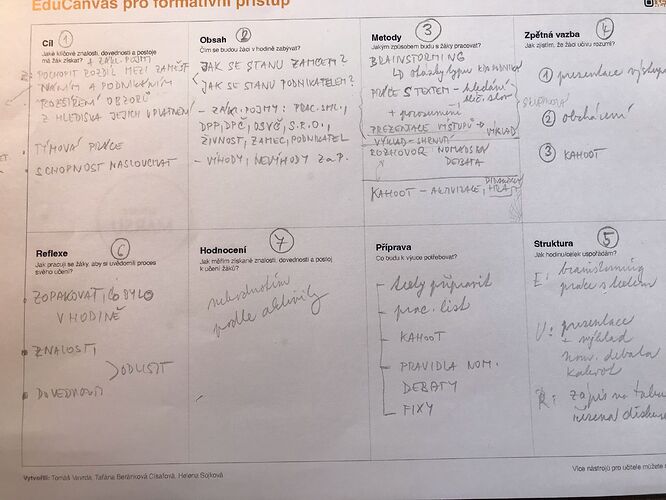 EduCanvas pro formativní přístup
Cíl 1
Jaké klíčové znalosti, dovednosti a postoje má žák získat?
+ ZÁKL. POJMY
POCHOPIT ROZDÍL MEZI ZAMĚST
NÁNÍM A PODNIKÁNÍM
ROZŠÍŘENÍ OBZORŮ
Z HLEDISKA JEJICH UPLATNĚNÍ
TÝMOVÁ PRÁCE
SCHOPNOST NASLOUCHAT
Obsah 2
Čím se budou žáci v hodině zabývat?
JAK SE STANU ZAMĚSTN.?
JAK SE STANU PODNIKATELEM?
- ZÁKL. POJMY: PRAC. SML.,
DPP, DPČ, OSVČ, S.R.O.,
ŽIVNOST, ZAMĚC, PODNIKATEL
- VÝHODY, NEVÝHODY Z a P.
Metody 3
Jakým způsobem budu s žáky pracovat?
BRAINSTORMING
otázky typu
PRÁCE S TEXTEM - hledání
klíč. slov
+ porozumění
PREZENTACE VÝSTUPŮ → VÝKLAD
VÝKLAD - SHRNUTÍ
ROZHOVOR
DEBATA
KAHOOT - AKTIVIZACE, HRA
Zpětná vazba 4
Jak zjistím, že žáci učivu rozumí?
1 prezentace výstupů
2 obcházení
3 KAHOOT
Reflexe 6
Jak pracuji se žáky, aby si uvědomili proces svého učení?
ZOPAKOVAT, CO BYLO
V HODINĚ
ZNALOSTI
DOVEDNOSTI
Hodnocení 7
Jak měřím získané znalosti, dovednosti a postoj k učení žáků?
nehodnotím
podle aktivity
Příprava
Co budu k výuce potřebovat?
- texty připravit
- prac. list
- KAHOOT
- PRAVIDLA NOM.
DEBATY
- FIXY
Struktura 5
Jak hodinu/celek uspořádám?
E: brainstorming
práce s textem
U: prezentace
+ výklad
nom. debata
kahoot
R: zápis na tabu
řízená disku
Vytvořili: Tomáš Vavrda, Taťána Beránková Císařová, Helena Sojková
Více nástrojů pro učitele můžete